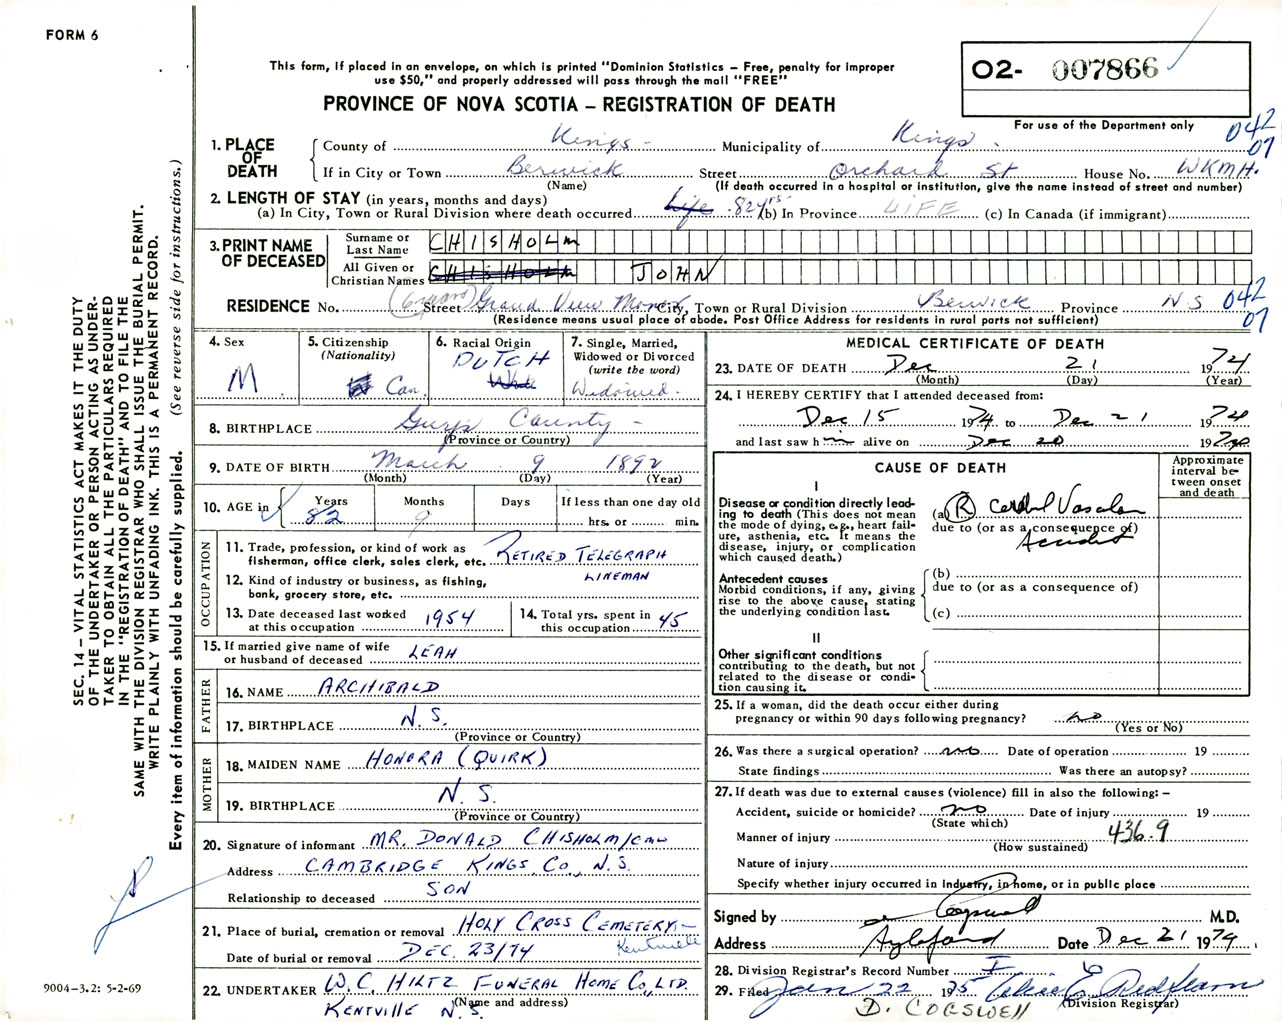 FORM 6
This form, if placed in an envelope, on which is printed "Dominion Statistics – Free, penalty for improper
use $50," and properly addressed will pass through the mail "FREE"
PROVINCE OF NOVA SCOTIA – REGISTRATION OF DEATH
02- 007866
For use of the Department only
042
07
1. PLACE OF DEATH
County of Kings Municipality of Kings
If in City or Town Berwick Street Orchard St House No. WKMH.
(Name) (If death occurred in a hospital or institution, give the name instead of street and number)
2. LENGTH OF STAY (in years, months and days)
(a) In City, Town or Rural Division where death occurred Life 82 yrs (b) In Province LIFE (c) In Canada (if immigrant)
3. PRINT NAME OF DECEASED
Surname or Last Name CHISHOLM
All Given or Christian Names CHISHOLM JOHN
RESIDENCE No. Street Grand View Manor City, Town or Rural Division Berwick Province N S 042
07
(Residence means usual place of abode. Post Office Address for residents in rural parts not sufficient)
4. Sex
M
5. Citizenship
(Nationality)
Can.
6. Racial Origin
DUTCH
White
7. Single, Married,
Widowed or Divorced
(write the word)
Widowed.
8. BIRTHPLACE Guys County
(Province or Country)
9. DATE OF BIRTH March 9 1892
(Month) (Day) (Year)
10. AGE in
Years Months Days If less than one day old
82 9 hrs. or min.
OCCUPATION
11. Trade, profession, or kind of work as
fisherman, office clerk, sales clerk, etc. RETIRED TELEGRAPH
LINEMAN
12. Kind of industry or business, as fishing,
bank, grocery store, etc.
13. Date deceased last worked
at this occupation 1954
14. Total yrs. spent in
this occupation 45
15. If married give name of wife
or husband of deceased LEAH
FATHER
16. NAME ARCHIBALD
17. BIRTHPLACE N.S.
(Province or Country)
MOTHER
18. MAIDEN NAME HONORA (QUIRK)
19. BIRTHPLACE N.S.
(Province or Country)
20. Signature of informant MR. DONALD CHISHOLM/
Address CAMBRIDGE KINGS CO., N.S.
Relationship to deceased SON
21. Place of burial, cremation or removal HOLY CROSS CEMETERY –
Kentville
Date of burial or removal DEC. 23/74
22. UNDERTAKER W.C. HILTZ FUNERAL HOME CO., LTD.
(Name and address)
KENTVILLE N.S.
MEDICAL CERTIFICATE OF DEATH
23. DATE OF DEATH Dec 21 1974
(Month) (Day) (Year)
24. I HEREBY CERTIFY that I attended deceased from:
Dec 15 1974 to Dec 21 1974
and last saw h im alive on Dec 20 1974
CAUSE OF DEATH
Approximate
interval be-
tween onset
and death
I
Disease or condition directly lead-
ing to death (This does not
mean the mode of dying, e.g., heart fail-
ure, asthenia, etc. It means the
disease, injury, or complication
which caused death.)
(a) (R) Vascular
due to (or as a consequence of)
Accident
Antecedent causes
Morbid conditions, if any, giving
rise to the above cause, stating
the underlying condition last.
(b)
due to (or as a consequence of)
(c)
II
Other significant conditions
contributing to the death, but not
related to the disease or condi-
tion causing it.
25. If a woman, did the death occur either during
pregnancy or within 90 days following pregnancy? no
(Yes or No)
26. Was there a surgical operation? no Date of operation 19
State findings Was there an autopsy?
27. If death was due to external causes (violence) fill in also the following: –
Accident, suicide or homicide? no Date of injury 19
(State which)
436.9
Manner of injury
(How sustained)
Nature of injury
Specify whether injury occurred in industry, in home, or in public place
Signed by Cogswell M.D.
Address Aylesford Date Dec 21 1974
28. Division Registrar's Record Number I
29. Filed Jan 22 1975 E Redfearn
(Division Registrar)
D. COGSWELL
SEC. 14 – VITAL STATISTICS ACT MAKES IT THE DUTY
OF THE UNDERTAKER OR PERSON ACTING AS UNDER-
TAKER TO OBTAIN ALL THE PARTICULARS REQUIRED
IN THE "REGISTRATION OF DEATH" AND TO FILE THE
SAME WITH THE DIVISION REGISTRAR WHO SHALL ISSUE THE BURIAL PERMIT.
WRITE PLAINLY WITH UNFADING INK. THIS IS A PERMANENT RECORD.
Every item of information should be carefully supplied. (See reverse side for instructions.)
9004-3.2: 5-2-69